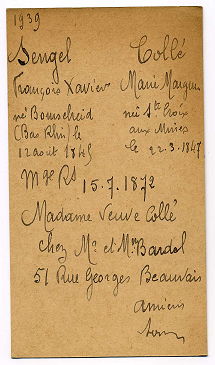 1939
Sengel Collé
François Xavier Marie Margue
né Bomscheid née Ste Croix
(Bas Rhin) le aux Mines
12 août 1845 le 22.3.1847
15.7.1872
Madame Veuve Collé
chez Mr et Mme Bardol
51 Rue Georges Beauvais
Amiens